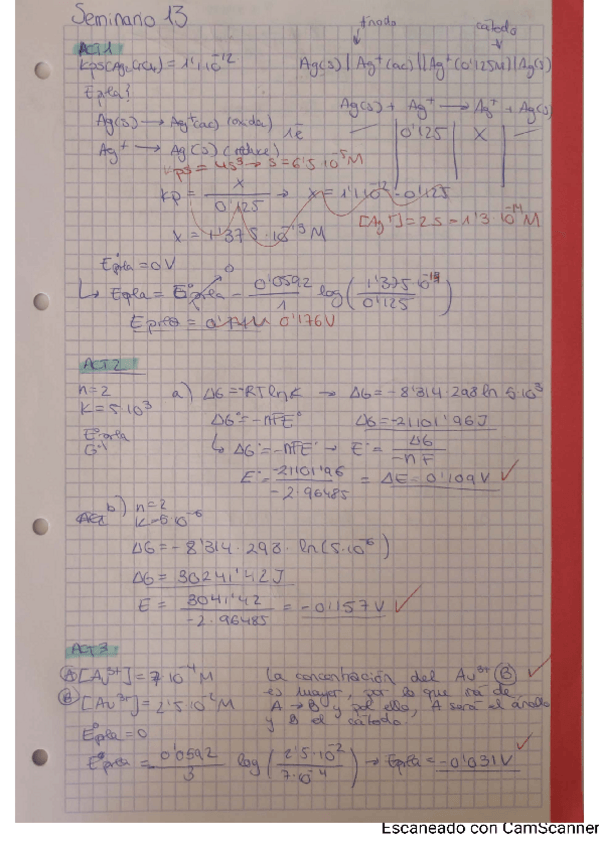 Seminario 13
ánodo
cátodo
ACT 1
Kps(Ag2CrO4) = 1'1·10^-12
Ag(s) | Ag+(ac) || Ag+(0'125M) | Ag(s)
Epila?
Ag(s) + Ag+ → Ag+ + Ag(s)
Ag(s) → Ag+(ac) (oxida)
1e
0'125 | x
Ag+ → Ag(s) (reduce)
Kps = 4s³ → s = 6'5·10^-5 M
Kp = x / 0'125 → x = 1'1·10^-12 · 0'125
[Ag+] = 2s = 1'3·10^-4 M
x = 1'375·10^-13 M
E°pila = 0V
0
↳ Epila = E°pila - 0'0592 / 1 log (1'375·10^-13 / 0'125)
Epila = 0'176V
ACT 2
n = 2
a) ΔG = -RT ln K → ΔG = -8'314·298 ln 5·10³
K = 5·10³
ΔG° = -nFE°
ΔG = -21101'96 J
E°pila
↳ ΔG° = -nFE° → E° = ΔG / -nF
E° = -21101'96 / -2·96485 = ΔE = 0'109 V ✓
b) n = 2
K = 5·10^-6
ΔG = -8'314·298·ln(5·10^-6)
ΔG = 30241'42 J
E = 3041'42 / -2·96485 = -0'157 V ✓
ACT 3
(A) [Au3+] = 7·10^-4 M
(B) [Au3+] = 2'5·10^-2 M
La concentración del Au3+ (B) ✓
es mayor, por lo que va de
A → B y por ello, A será el ánodo
y B el cátodo.
E°pila = 0
E°pila = 0'0592 / 3 log (2'5·10^-2 / 7·10^-4) → Epila = -0'031 V ✓
Escaneado con CamScanner